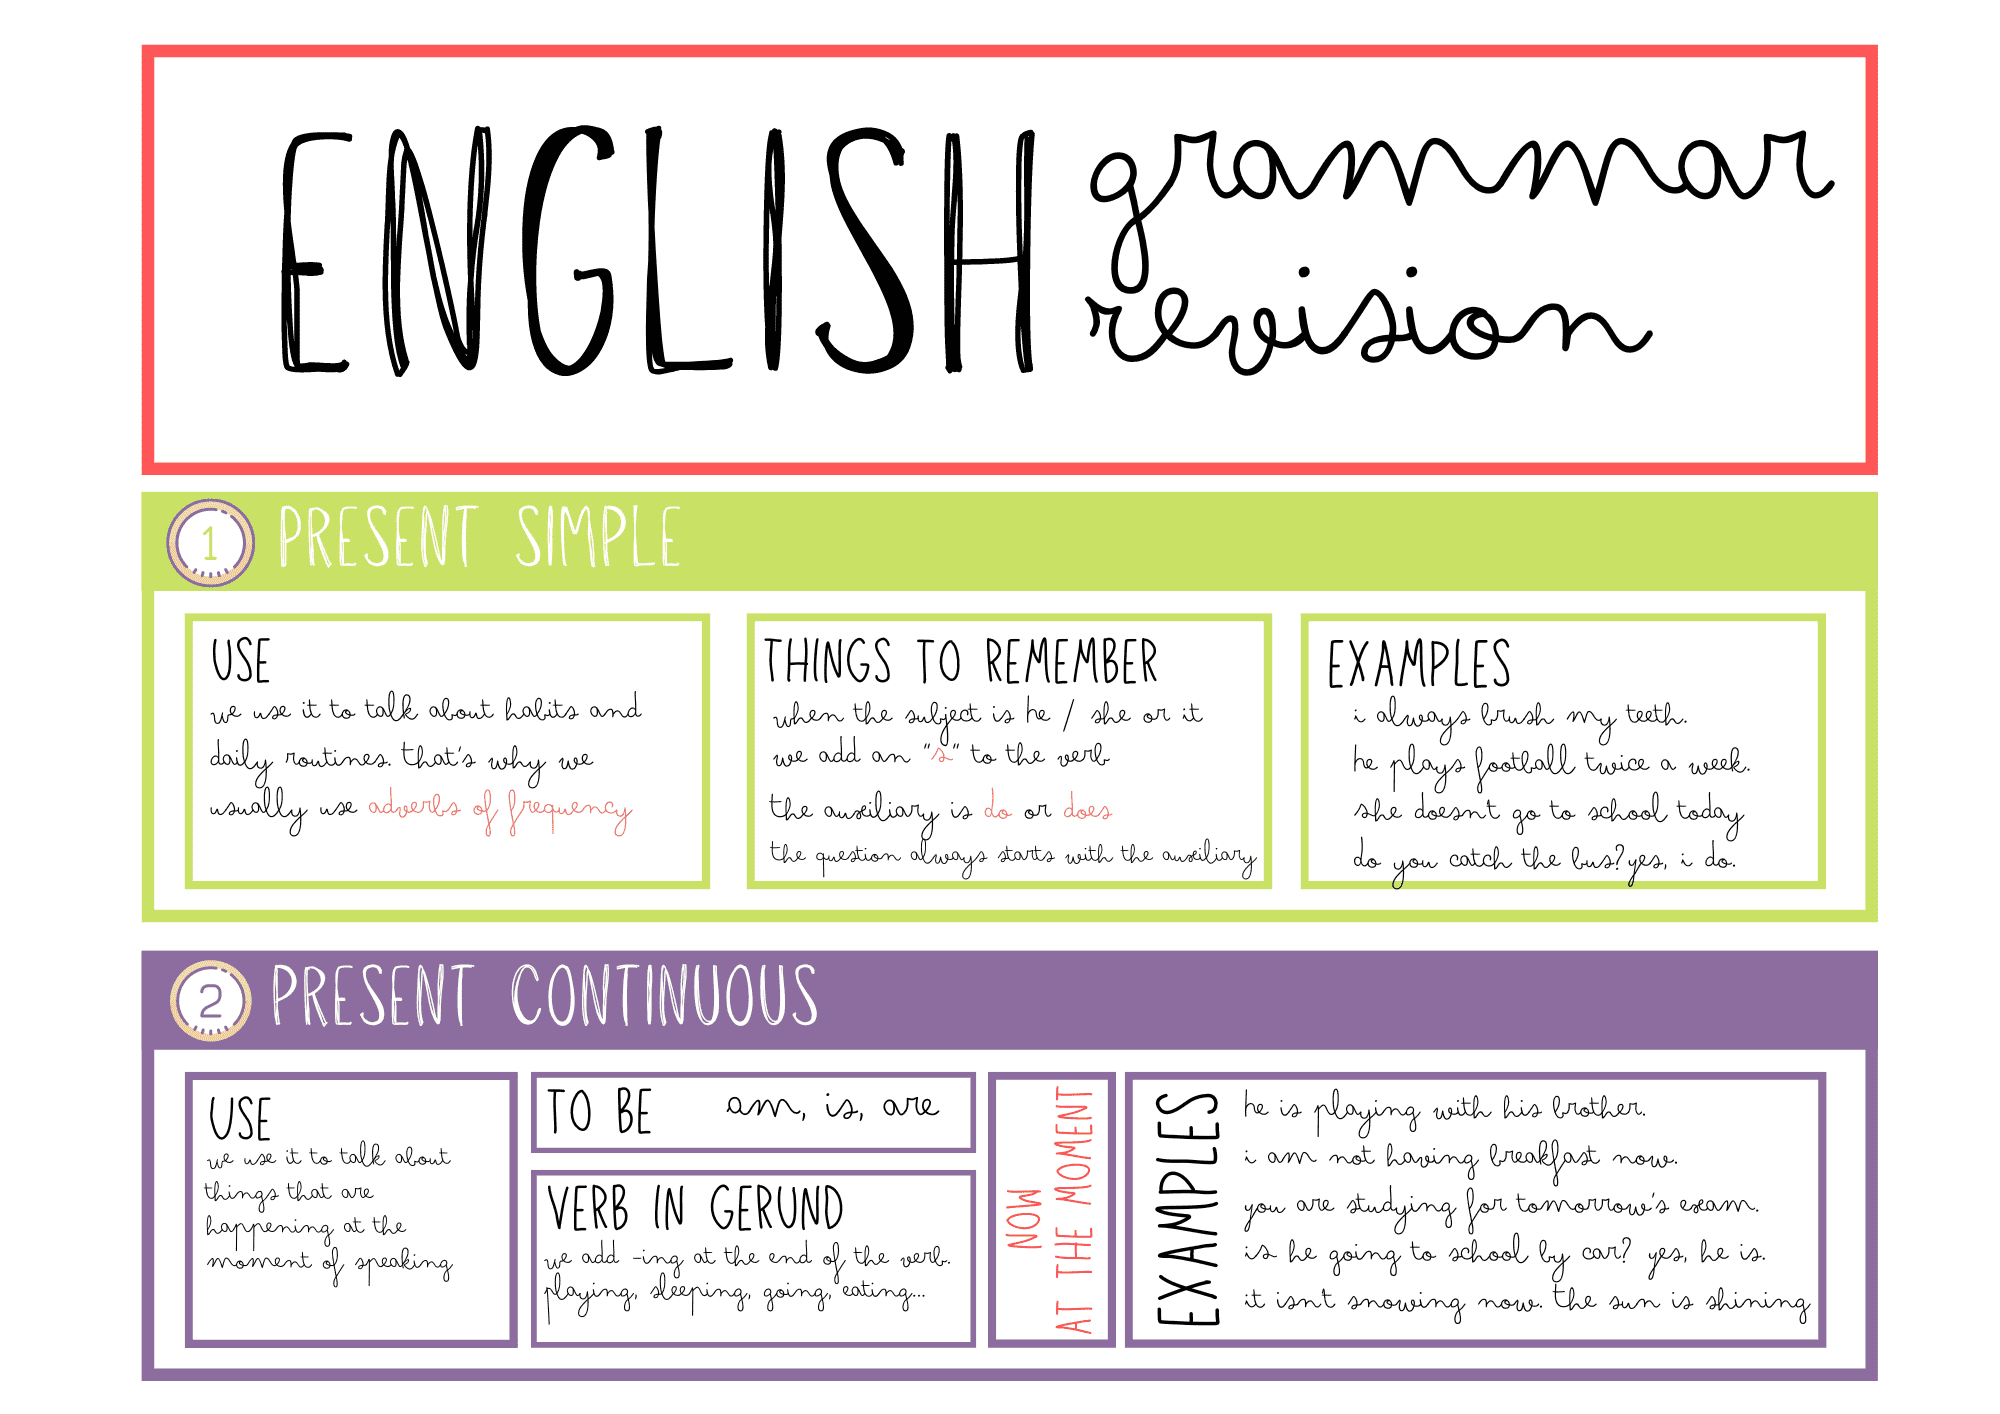 ENGLISH grammar
revision
1 PRESENT SIMPLE
USE
we use it to talk about habits and
daily routines. that's why we
usually use adverbs of frequency
THINGS TO REMEMBER
when the subject is he / she or it
we add an "s" to the verb
the auxiliary is do or does
the question always starts with the auxiliary
EXAMPLES
i always brush my teeth.
he plays football twice a week.
she doesnt go to school today
do you catch the bus? yes, i do.
2 PRESENT CONTINUOUS
USE
we use it to talk about
things that are
happening at the
moment of speaking
TO BE am, is, are
VERB IN GERUND
we add -ing at the end of the verb.
playing, sleeping, going, eating...
NOW
AT THE MOMENT
EXAMPLES
he is playing with his brother.
i am not having breakfast now.
you are studying for tomorrow's exam.
is he going to school by car? yes, he is.
it isnt snowing now. the sun is shining